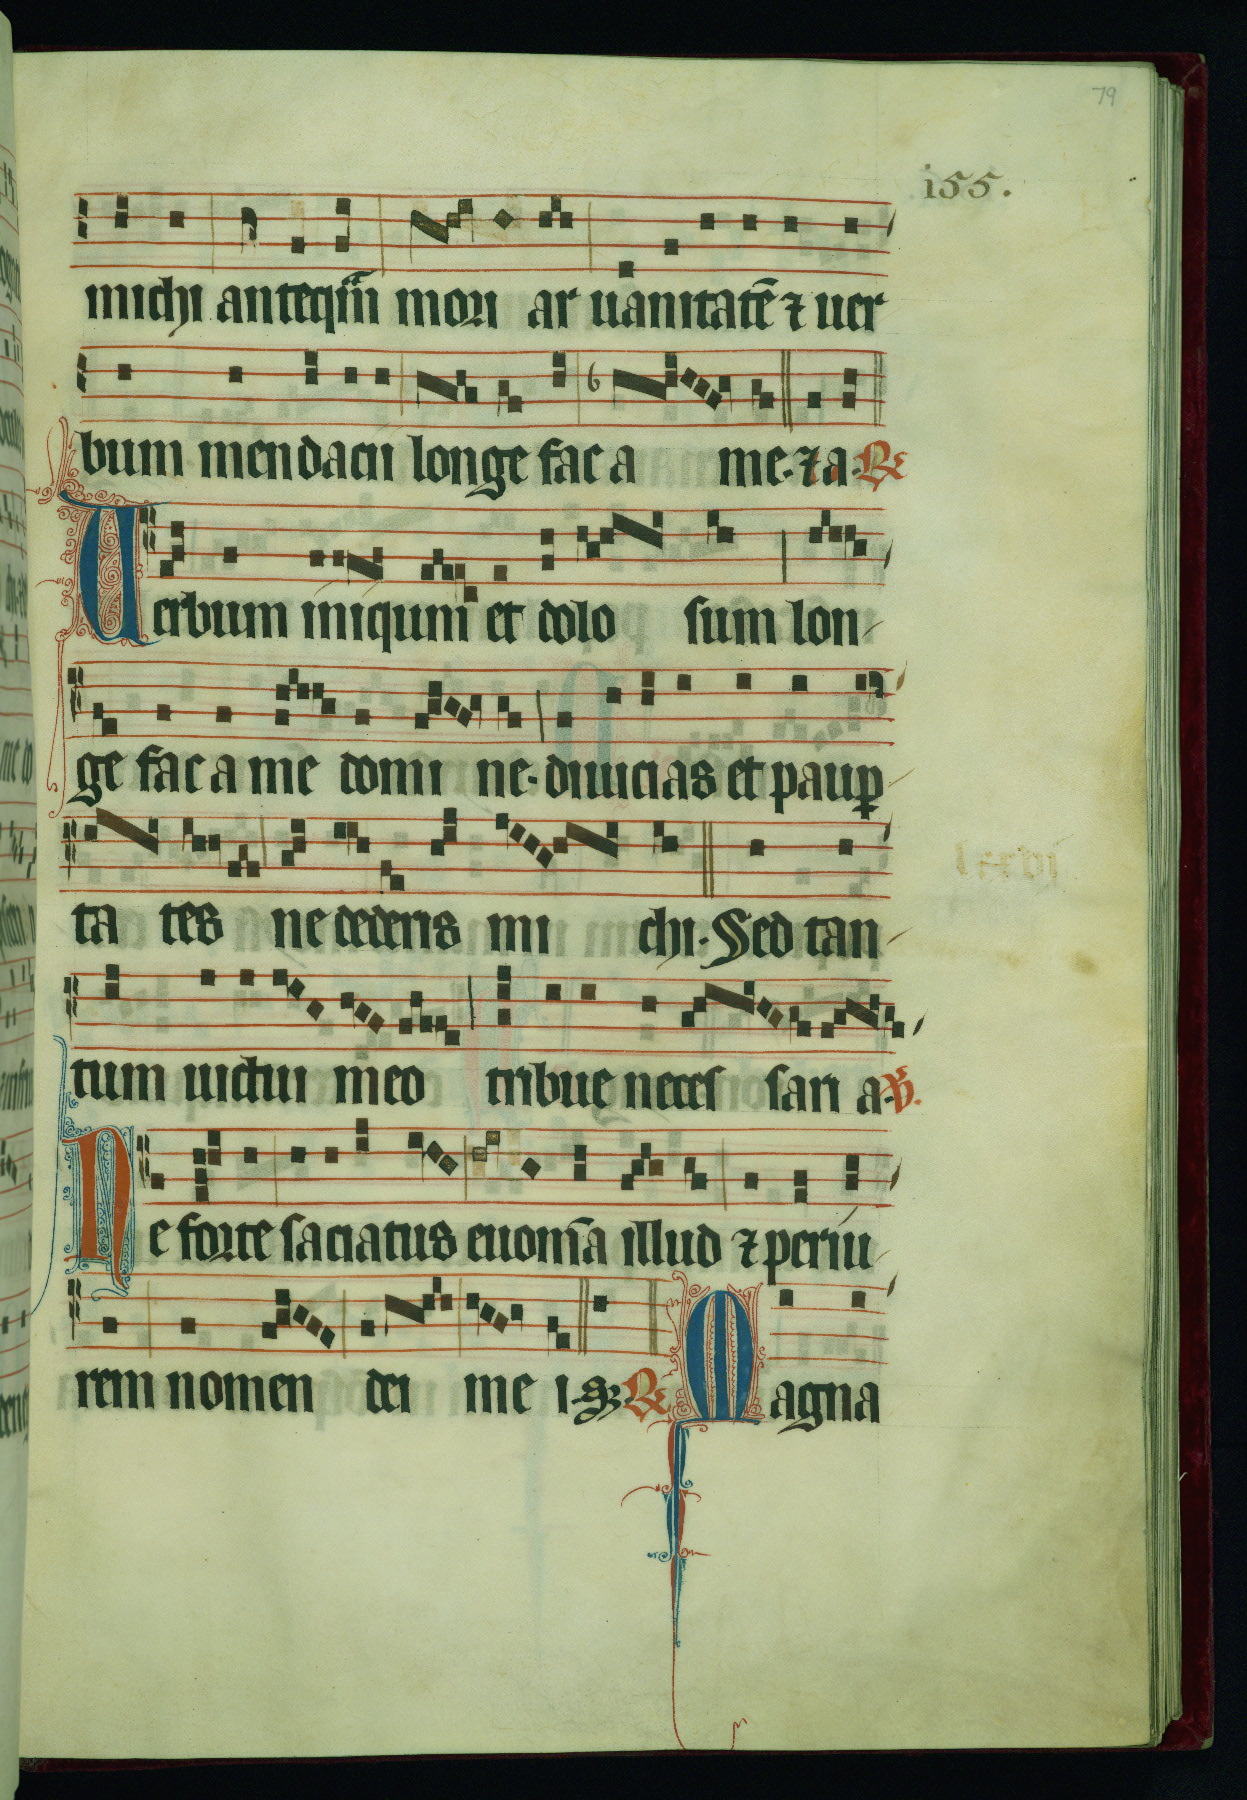 79
i55.
michi anteq̃m mori ar uanitatē ⁊ uer
bum mendacii longe fac a me. ⁊ a. R
Uerbum iniqum et dolo sum lon
ge fac a me domi ne. diuicias et paup
ta tes ne dederis mi chi. Sed tan
tum uictui meo tribue neces sari a. V.
Ne forte saciatus euom̄a illud ⁊ periu
rem nomen dei me i. S. R Magna